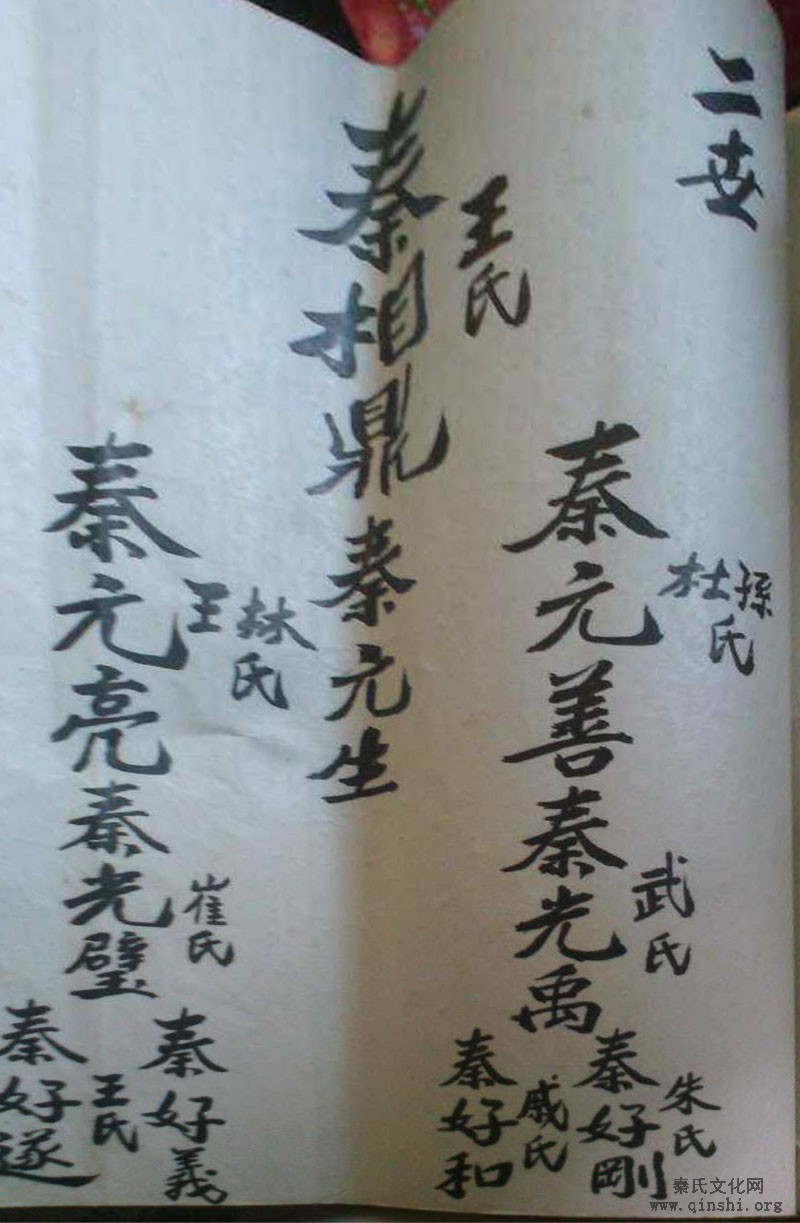 二世
秦相鼎
王氏
秦元善
孫
杜氏
秦光禹
武氏
秦好剛
朱氏
秦好和
戚氏
秦元生
秦元亮
林氏
王
秦光璧
崔氏
秦好義
秦好遂
王氏
秦氏文化网
www.qinshi.org